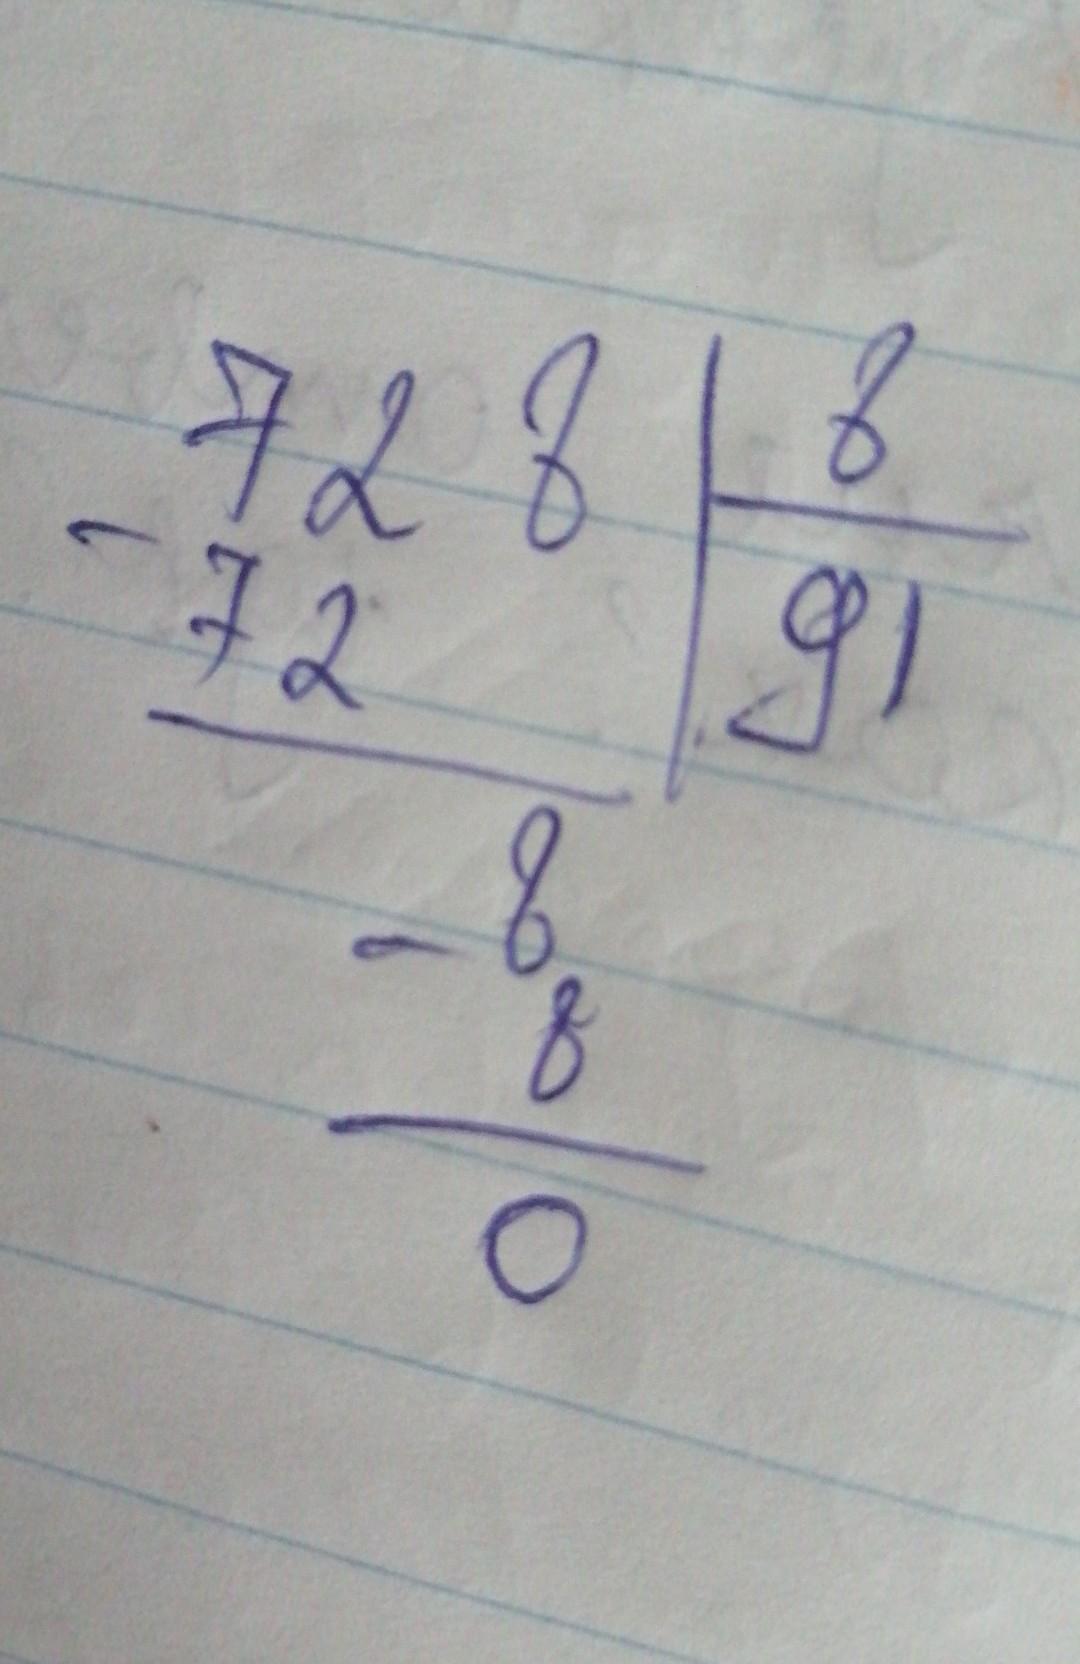 728 | 8
- 72 | 91
- 8
8
0